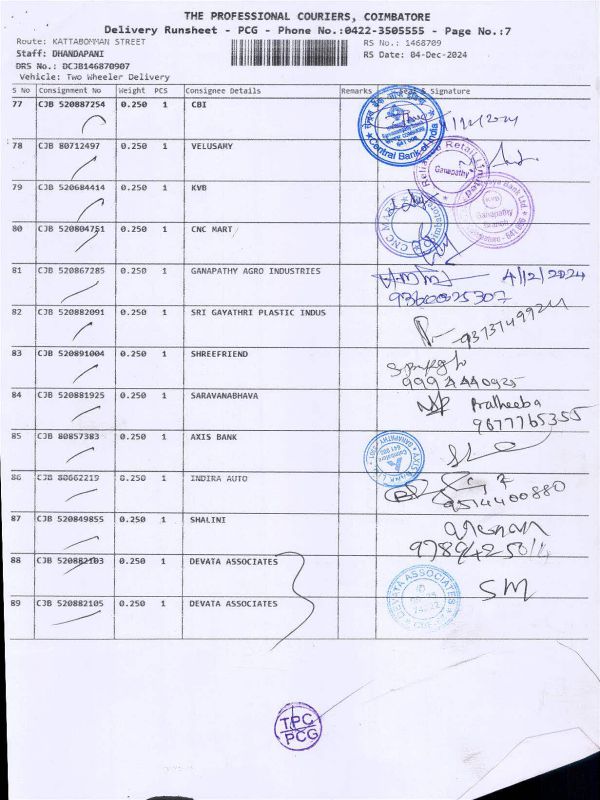 THE PROFESSIONAL COURIERS, COIMBATORE
Delivery Runsheet - PCG - Phone No.:0422-3505555 - Page No.:7
Route: KATTABOMMAN STREET RS No.: 1468709
Staff: DHANDAPANI RS Date: 04-Dec-2024
DRS No.: DCJB146870907
Vehicle: Two Wheeler Delivery
S No Consignment No Weight PCS Consignee Details Remarks Seal & Signature
77 CJB 520887254 0.250 1 CBI
Central Bank of India
78 CJB 80712497 0.250 1 VELUSAMY
Retail Ganapathy
79 CJB 520684414 0.250 1 KVB
Bank Ltd. KVB Ganapathy
80 CJB 520804751 0.250 1 CNC MART
CNC MART
81 CJB 520867285 0.250 1 GANAPATHY AGRO INDUSTRIES 4/12/2024
9360025307
82 CJB 520882091 0.250 1 SRI GAYATHRI PLASTIC INDUS
83 CJB 520891004 0.250 1 SHREEFRIEND
84 CJB 520881925 0.250 1 SARAVANABHAVA Pratheeba
9877765355
85 CJB 80857383 0.250 1 AXIS BANK
AXIS BANK
86 CJB 80662219 0.250 1 INDIRA AUTO
9514400880
87 CJB 520849855 0.250 1 SHALINI
88 CJB 520882103 0.250 1 DEVATA ASSOCIATES
DEVATA ASSOCIATES SM
89 CJB 520882105 0.250 1 DEVATA ASSOCIATES
TPC
PCG